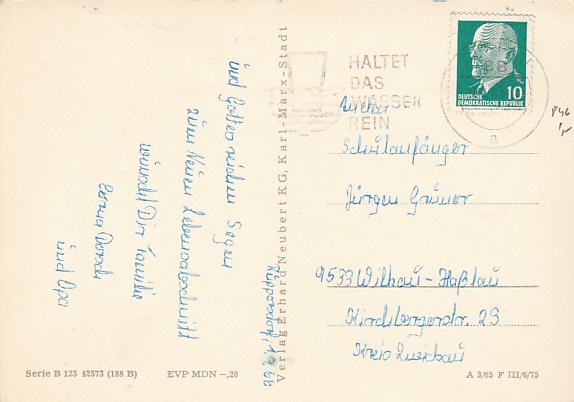 und Gottes reichen Segen
zum Neuen Lebensabschnitt
wünscht Dir Familie
und Opa
Verlag Erhard Neubert KG, Karl-Marx-Stadt
HALTET
DAS
WASSER
REIN
DEUTSCHE
DEMOKRATISCHE REPUBLIK
10
a
Schulanfänger
Jürgen Grüner
9533 Wilkau-Haßlau
Kirchbergerstr. 23
Kreis Zwickau
Serie B 125 42573 (188 B)
EVP MDN -,20
A 3/65 F III/6/75